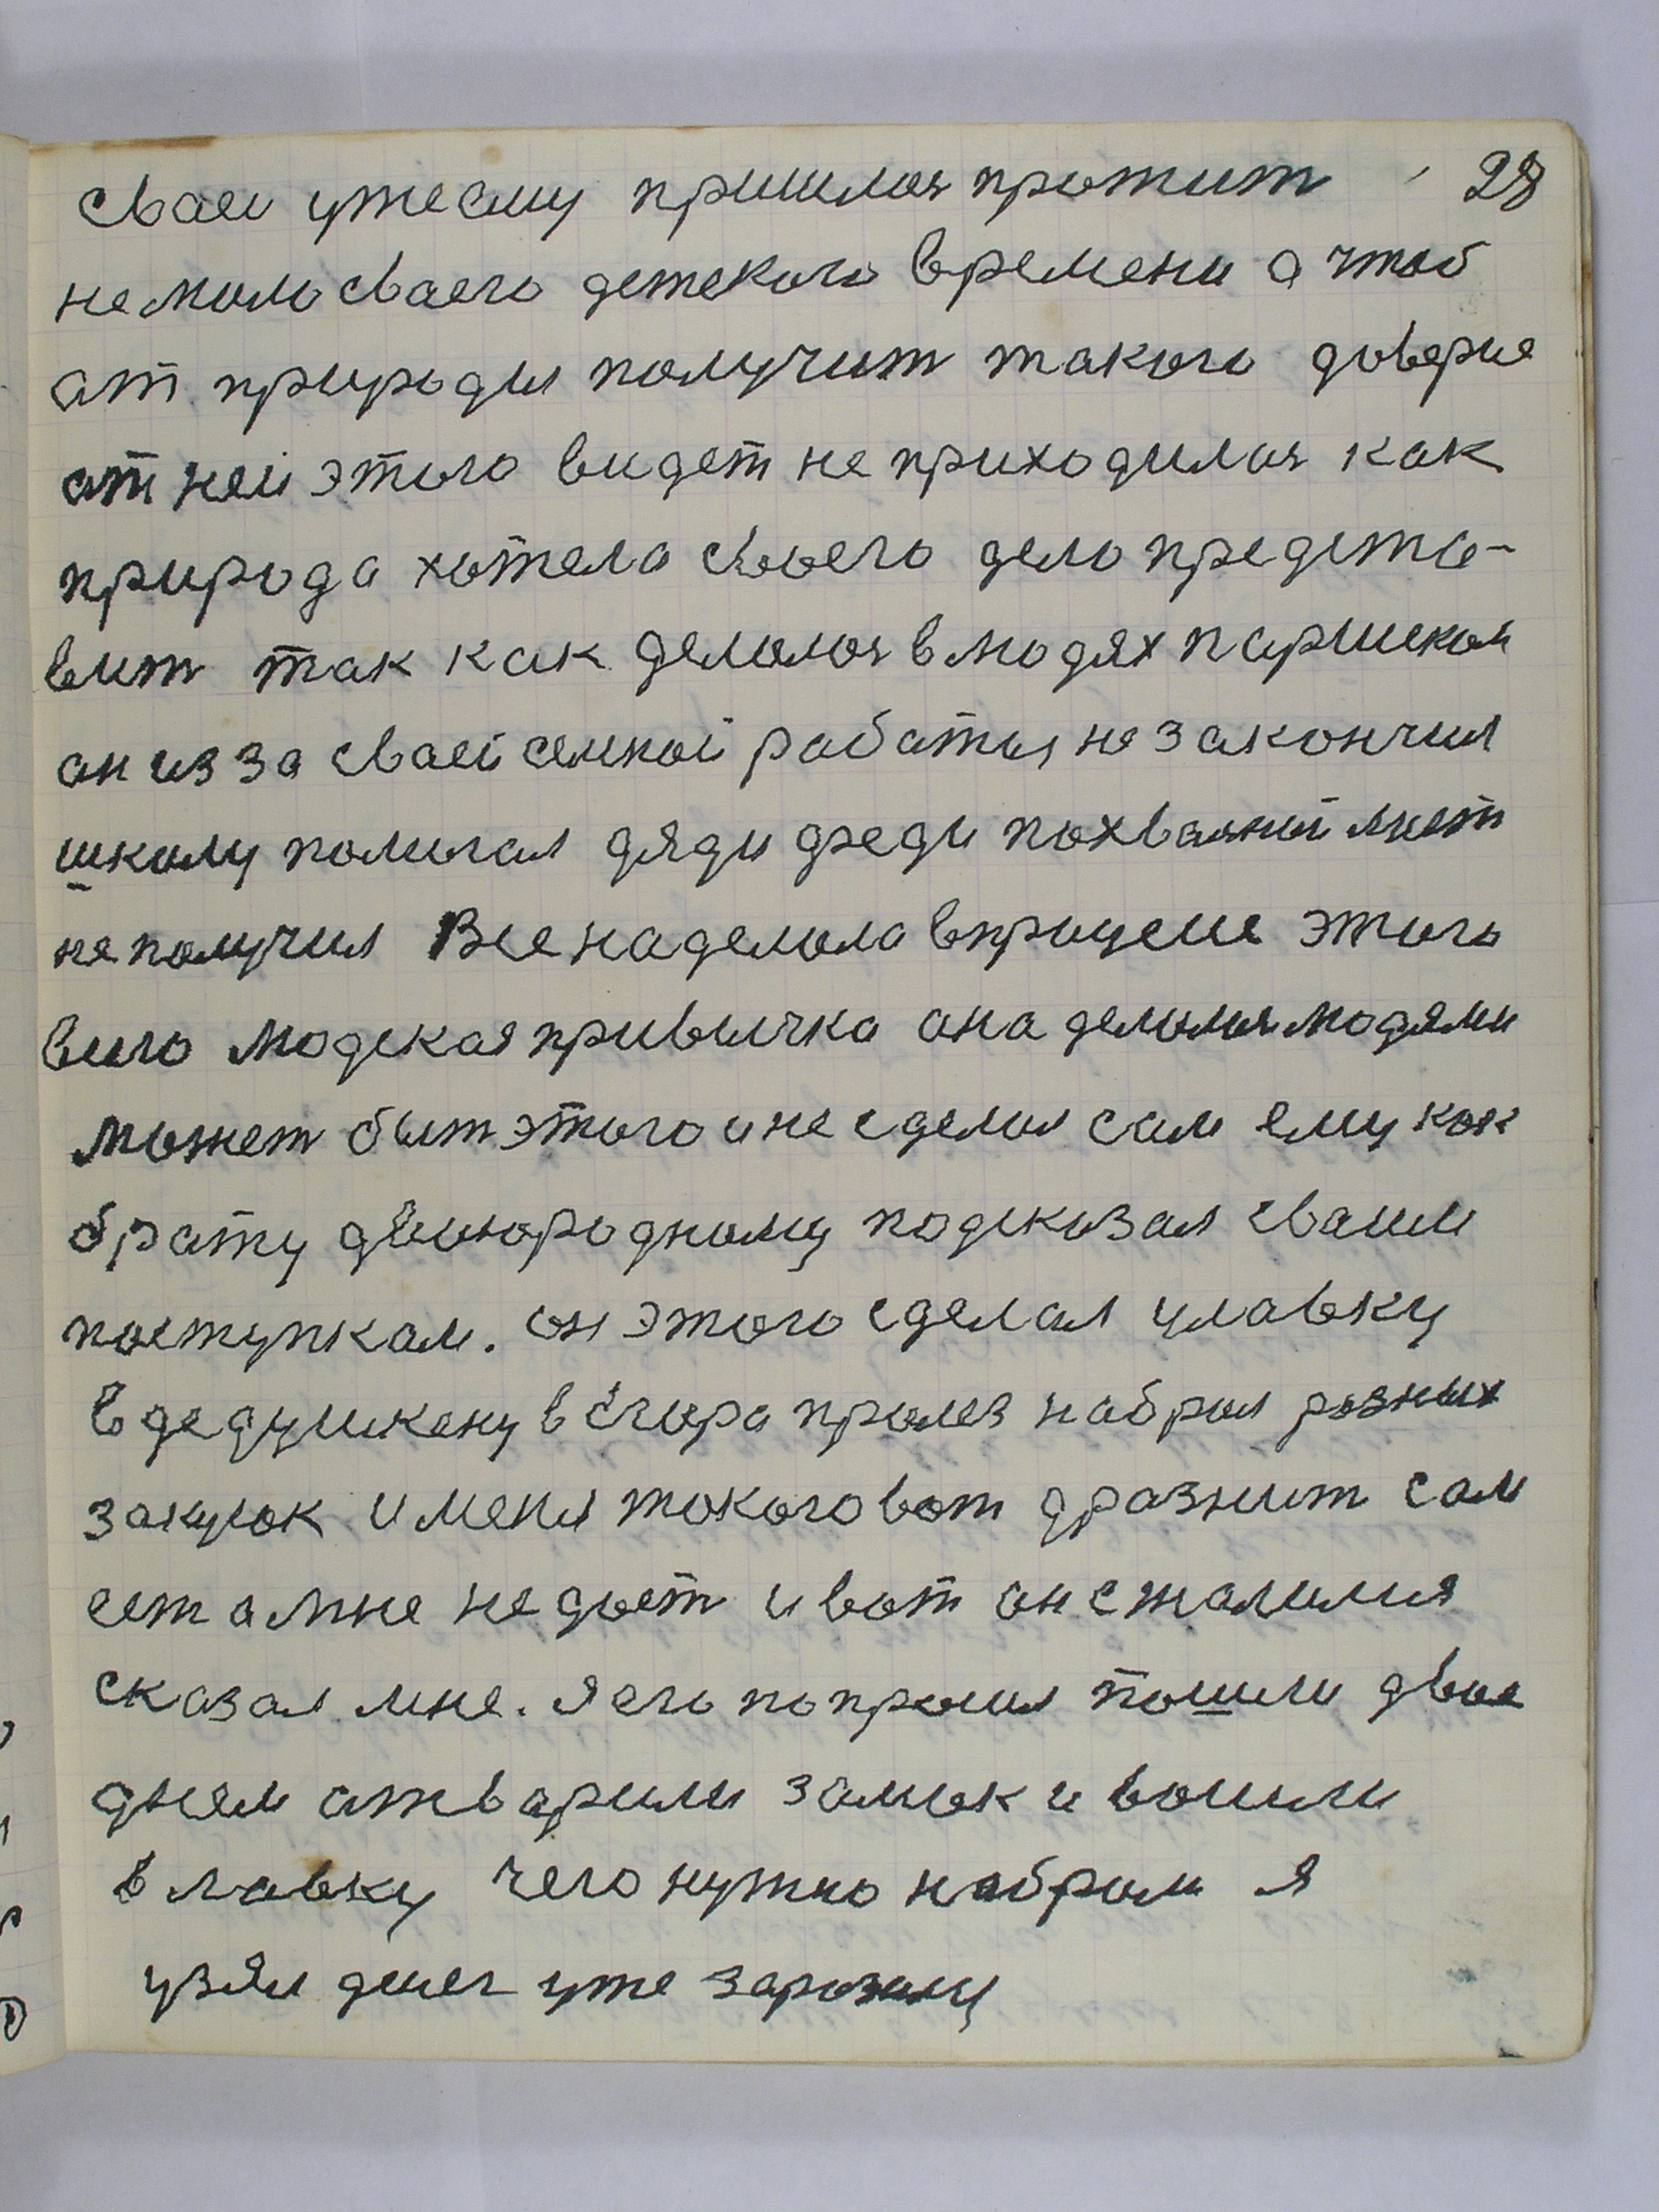 сваеи уже ему пришлося прожит 28
не мало сваего детского времени а чтоб
ат природы получит такого доверие
ат ней этого видет не приходилося как
природа хотела своего дело предста-
вит так как делолося в людях паришком
ан из за сваей семной работы не закончил
школу помогал дяди феди похвалной лист
не получил Все наделола в процеше этого
виго людская привычка ана делолося людями
может быт этого и не сделол сам ему как
брату двоюродному подсказал сваим
поступкам. он этого сделал улавку
в дедушкену вчера пролез набрал розных
закусок и меня токого вот дразнит сам
ест а мне не дает и вот он сжалился
сказал мне. я его попросил пошли двое
днем атварили замок и вошли
в лавку чего нужно набрали я
узял денег уже заразы